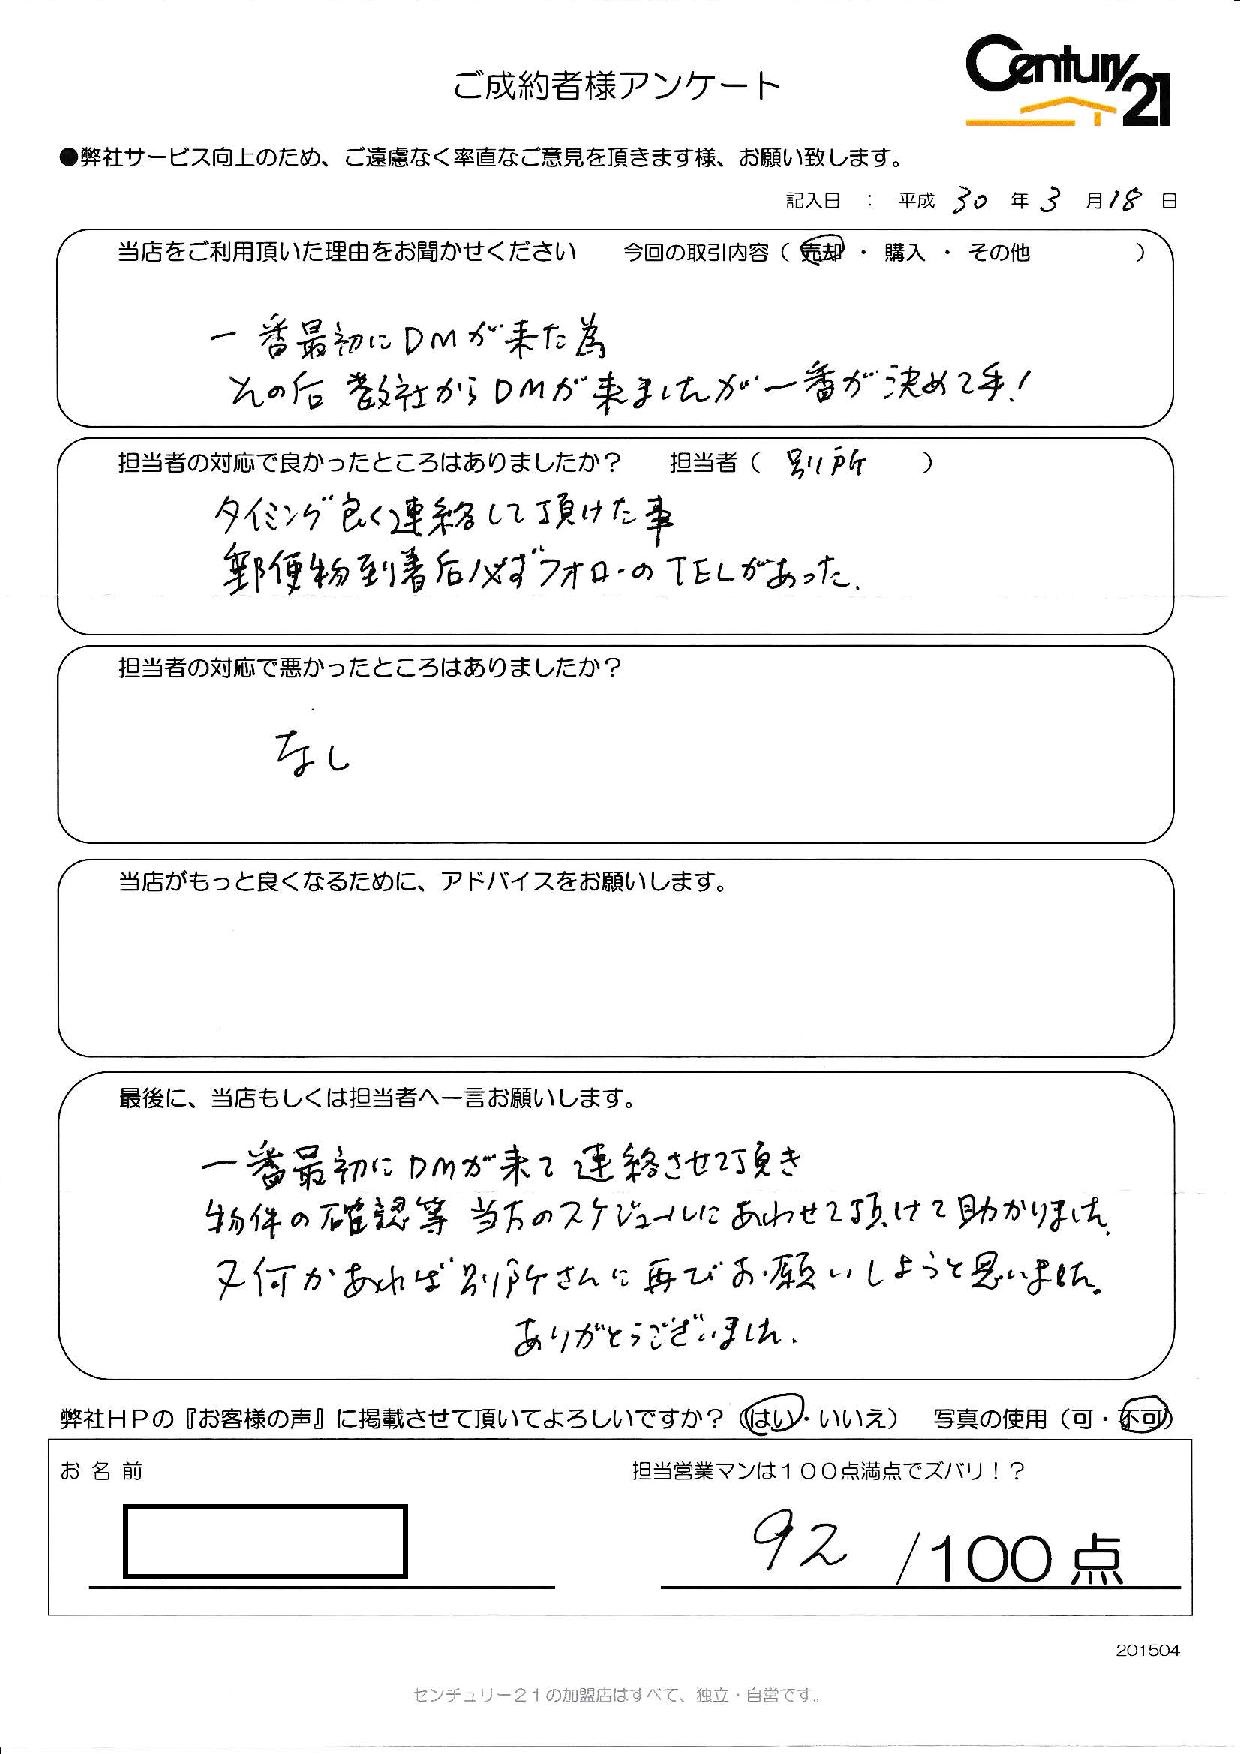 Century 21
ご成約者様アンケート
●弊社サービス向上のため、ご遠慮なく率直なご意見を頂きます様、お願い致します。
記入日 : 平成 30 年 3 月 18 日
当店をご利用頂いた理由をお聞かせください 今回の取引内容 ( 売却 ・ 購入 ・ その他 )
一番最初にDMが来た為
その后 数社からDMが来ましたが一番が決めて手!
担当者の対応で良かったところはありましたか? 担当者 ( 別所 )
タイミング良く連絡して頂けた事
郵便物到着后必ずフォローのTELがあった.
担当者の対応で悪かったところはありましたか?
なし
当店がもっと良くなるために、アドバイスをお願いします。
最後に、当店もしくは担当者へ一言お願いします。
一番最初にDMが来て 連絡させて頂き
物件の確認等 当方のスケジュールにあわせて頂けて助かりました.
又何かあれば別所さんに再びお願いしようと思いました.
ありがとうございました.
弊社HPの『お客様の声』に掲載させて頂いてよろしいですか? (はい・いいえ) 写真の使用 (可・不可)
お名前 担当営業マンは100点満点でズバリ!?
92 /100点
201504
センチュリー21の加盟店はすべて、独立・自営です。